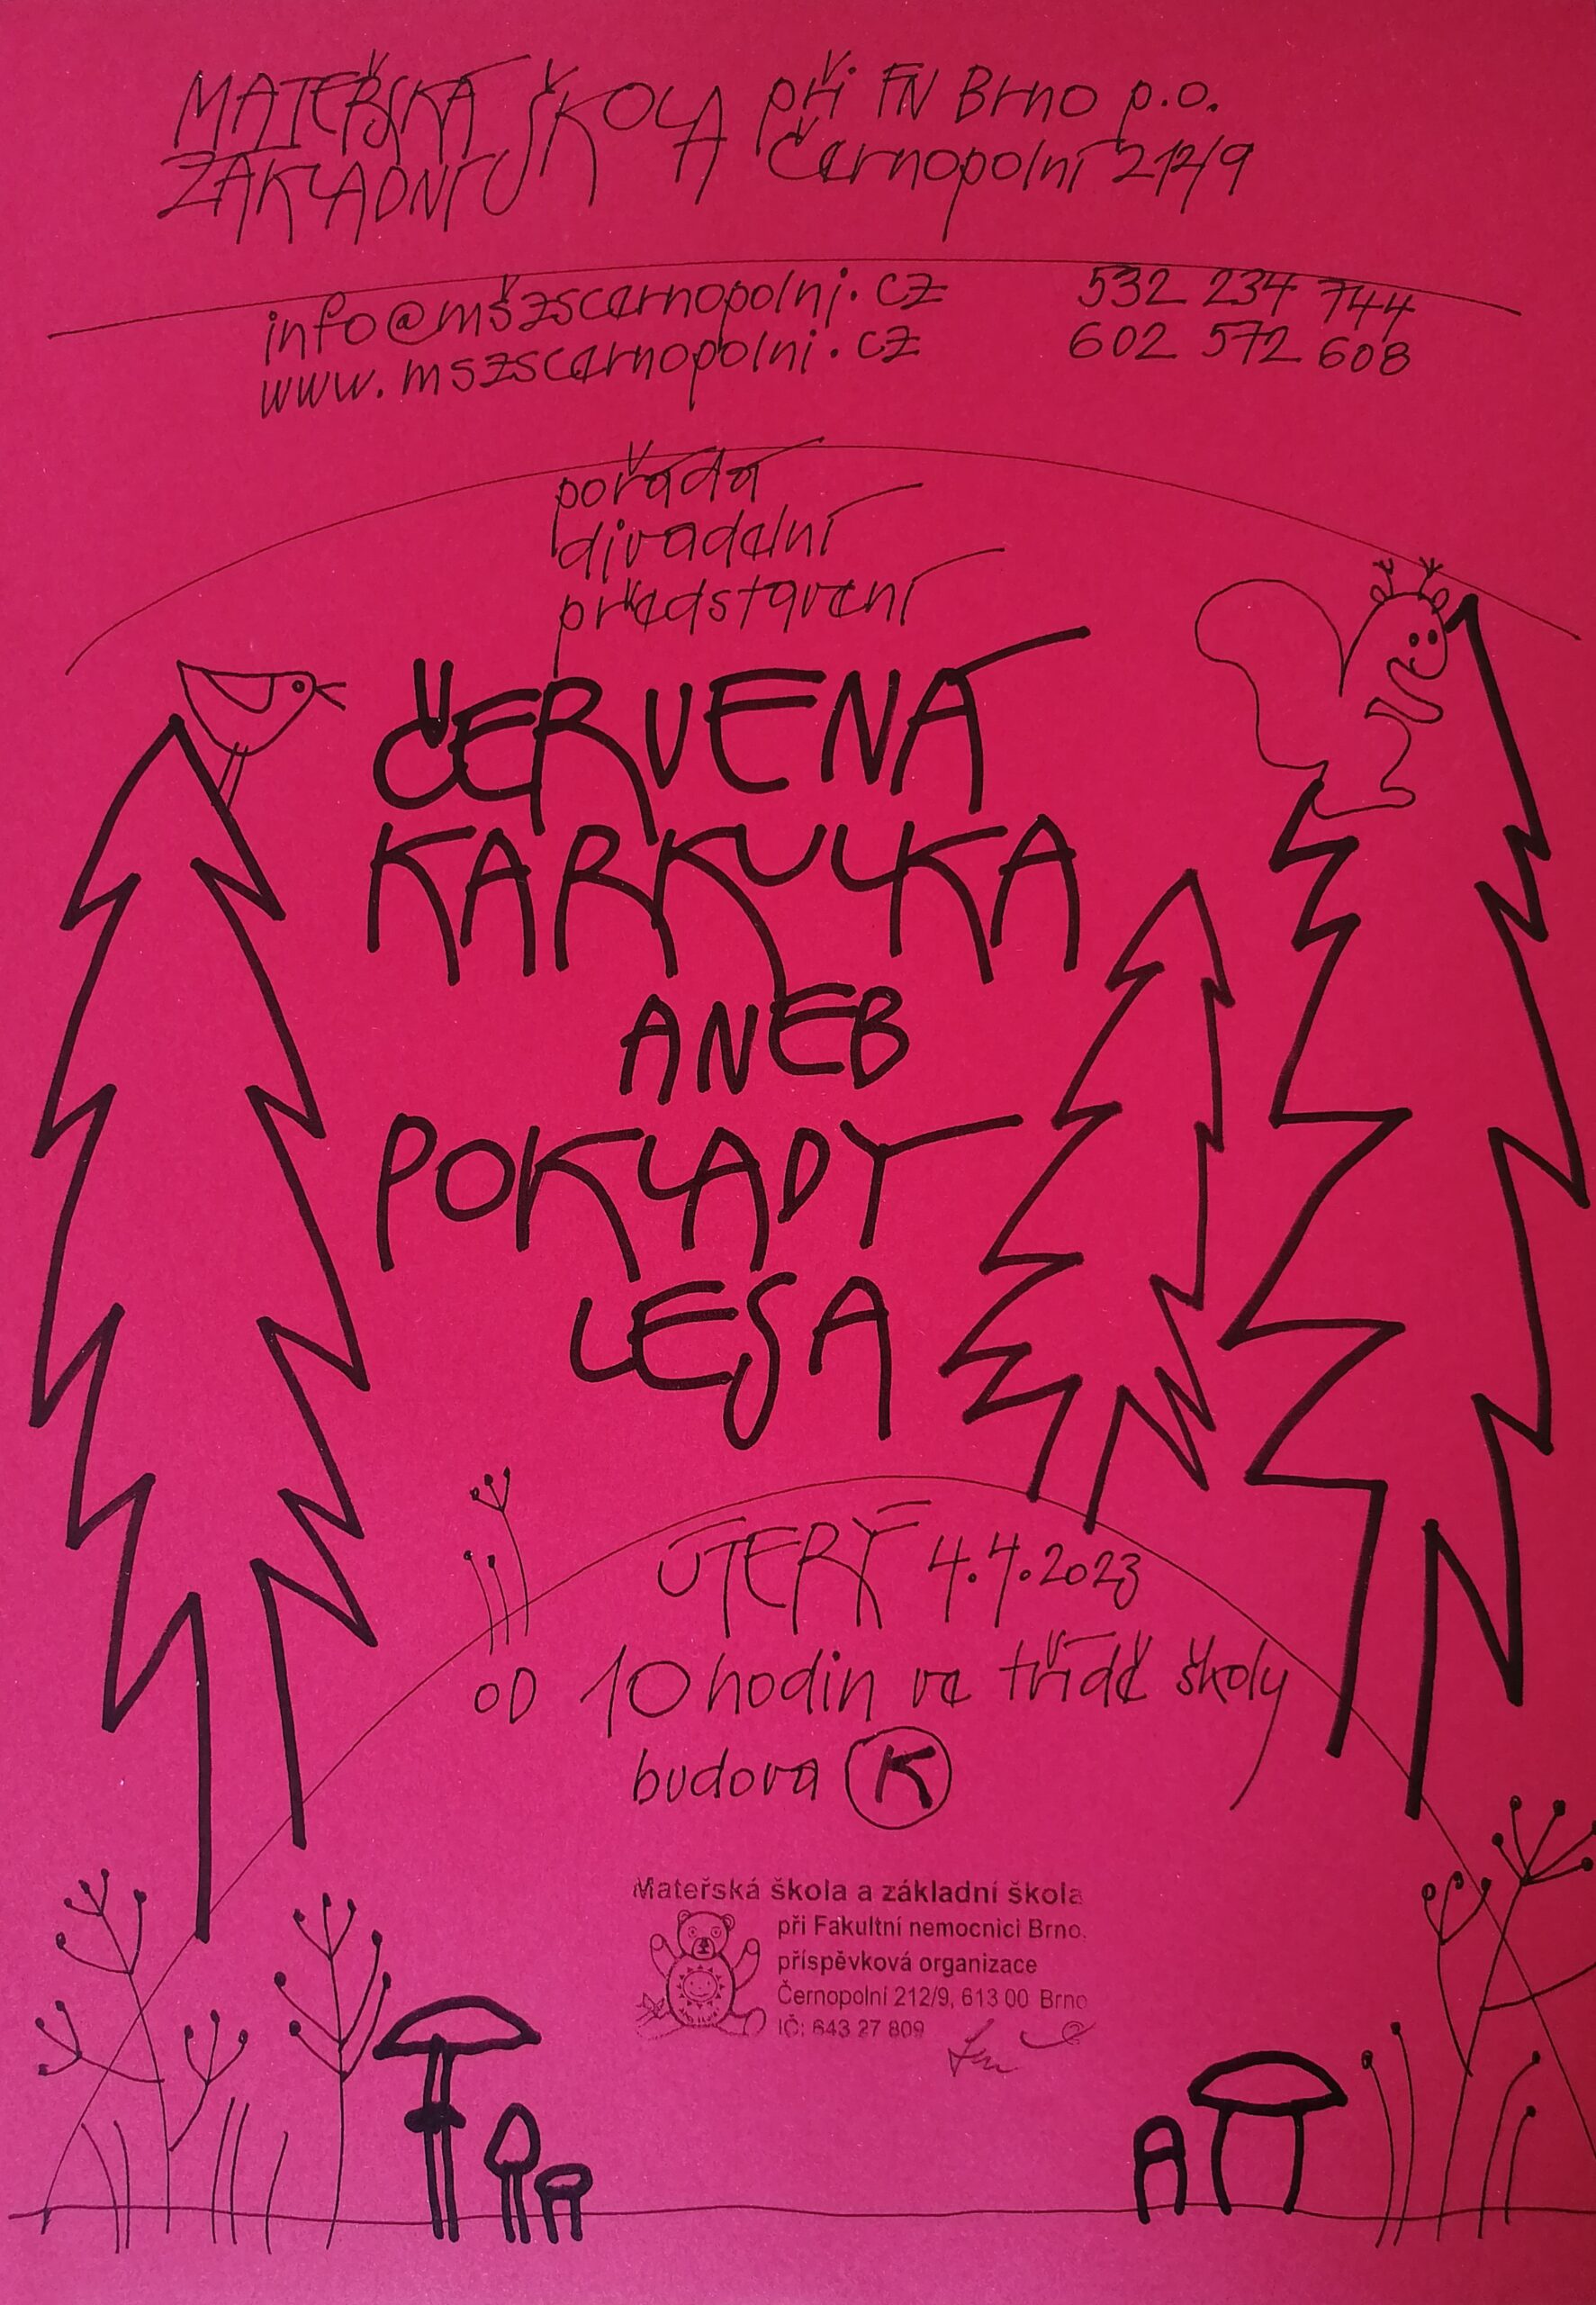 MATEŘSKÁ ŠKOLA při FN Brno p.o.
ZÁKLADNÍ Černopolní 212/9
info@mšzscernopolni.cz 532 234 744
www.mszscernopolni.cz 602 572 608
pořádá
divadelní
představení
ČERVENÁ
KARKULKA
ANEB
POKLADY
LESA
ÚTERÝ 4.4.2023
OD 10 hodin ve třídě školy
budova K
Mateřská škola a základní škola
při Fakultní nemocnici Brno,
příspěvková organizace
Černopolní 212/9, 613 00 Brno
IČ: 643 27 809